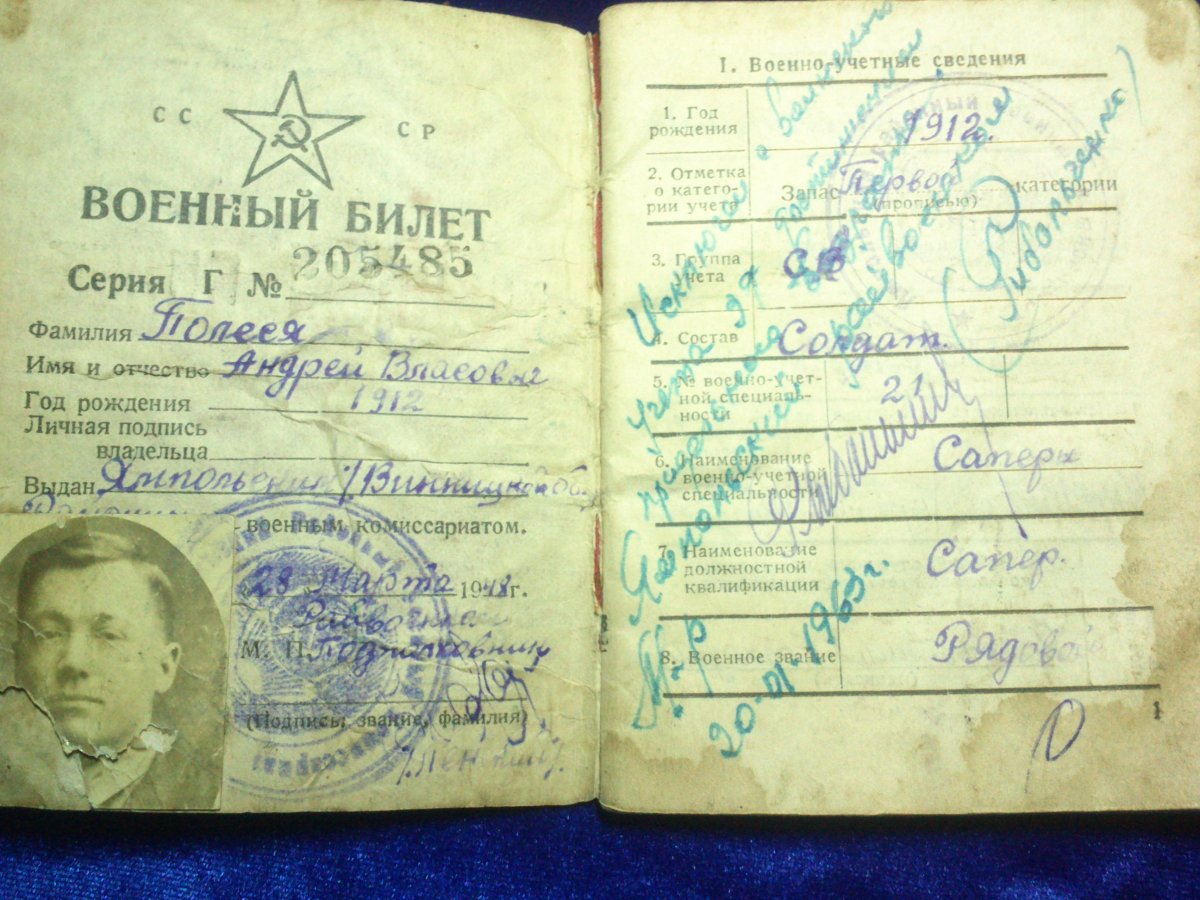 СССР
ВОЕННЫЙ БИЛЕТ
Серия Г № 205485
Фамилия Полеся
Имя и отчество Андрей Власовыч
Год рождения 1912
Личная подпись
владельца
Выдан Ямпольским /Винницкой об.
военным комиссариатом.
28 Марта 1948 г.
М. П. Подполковник
(Подпись, звание, фамилия)
I. Военно-учетные сведения
1. Год
рождения
1912.
2. Отметка
о катего-
рии учета
Запас Первой категории
(прописью)
3. Группа
учета
СВ
4. Состав
Солдат.
5. № военно-учет-
ной специаль-
ности
21
6. Наименование
военно-учетной
специальности
Саперы
7. Наименование
должностной
квалификации
Сапер.
8. Военное звание
Рядовой
1
Исключен с воинского
учета за достижением
предельного возраста
Ямпольский райвоенком
20-01-1963 г.